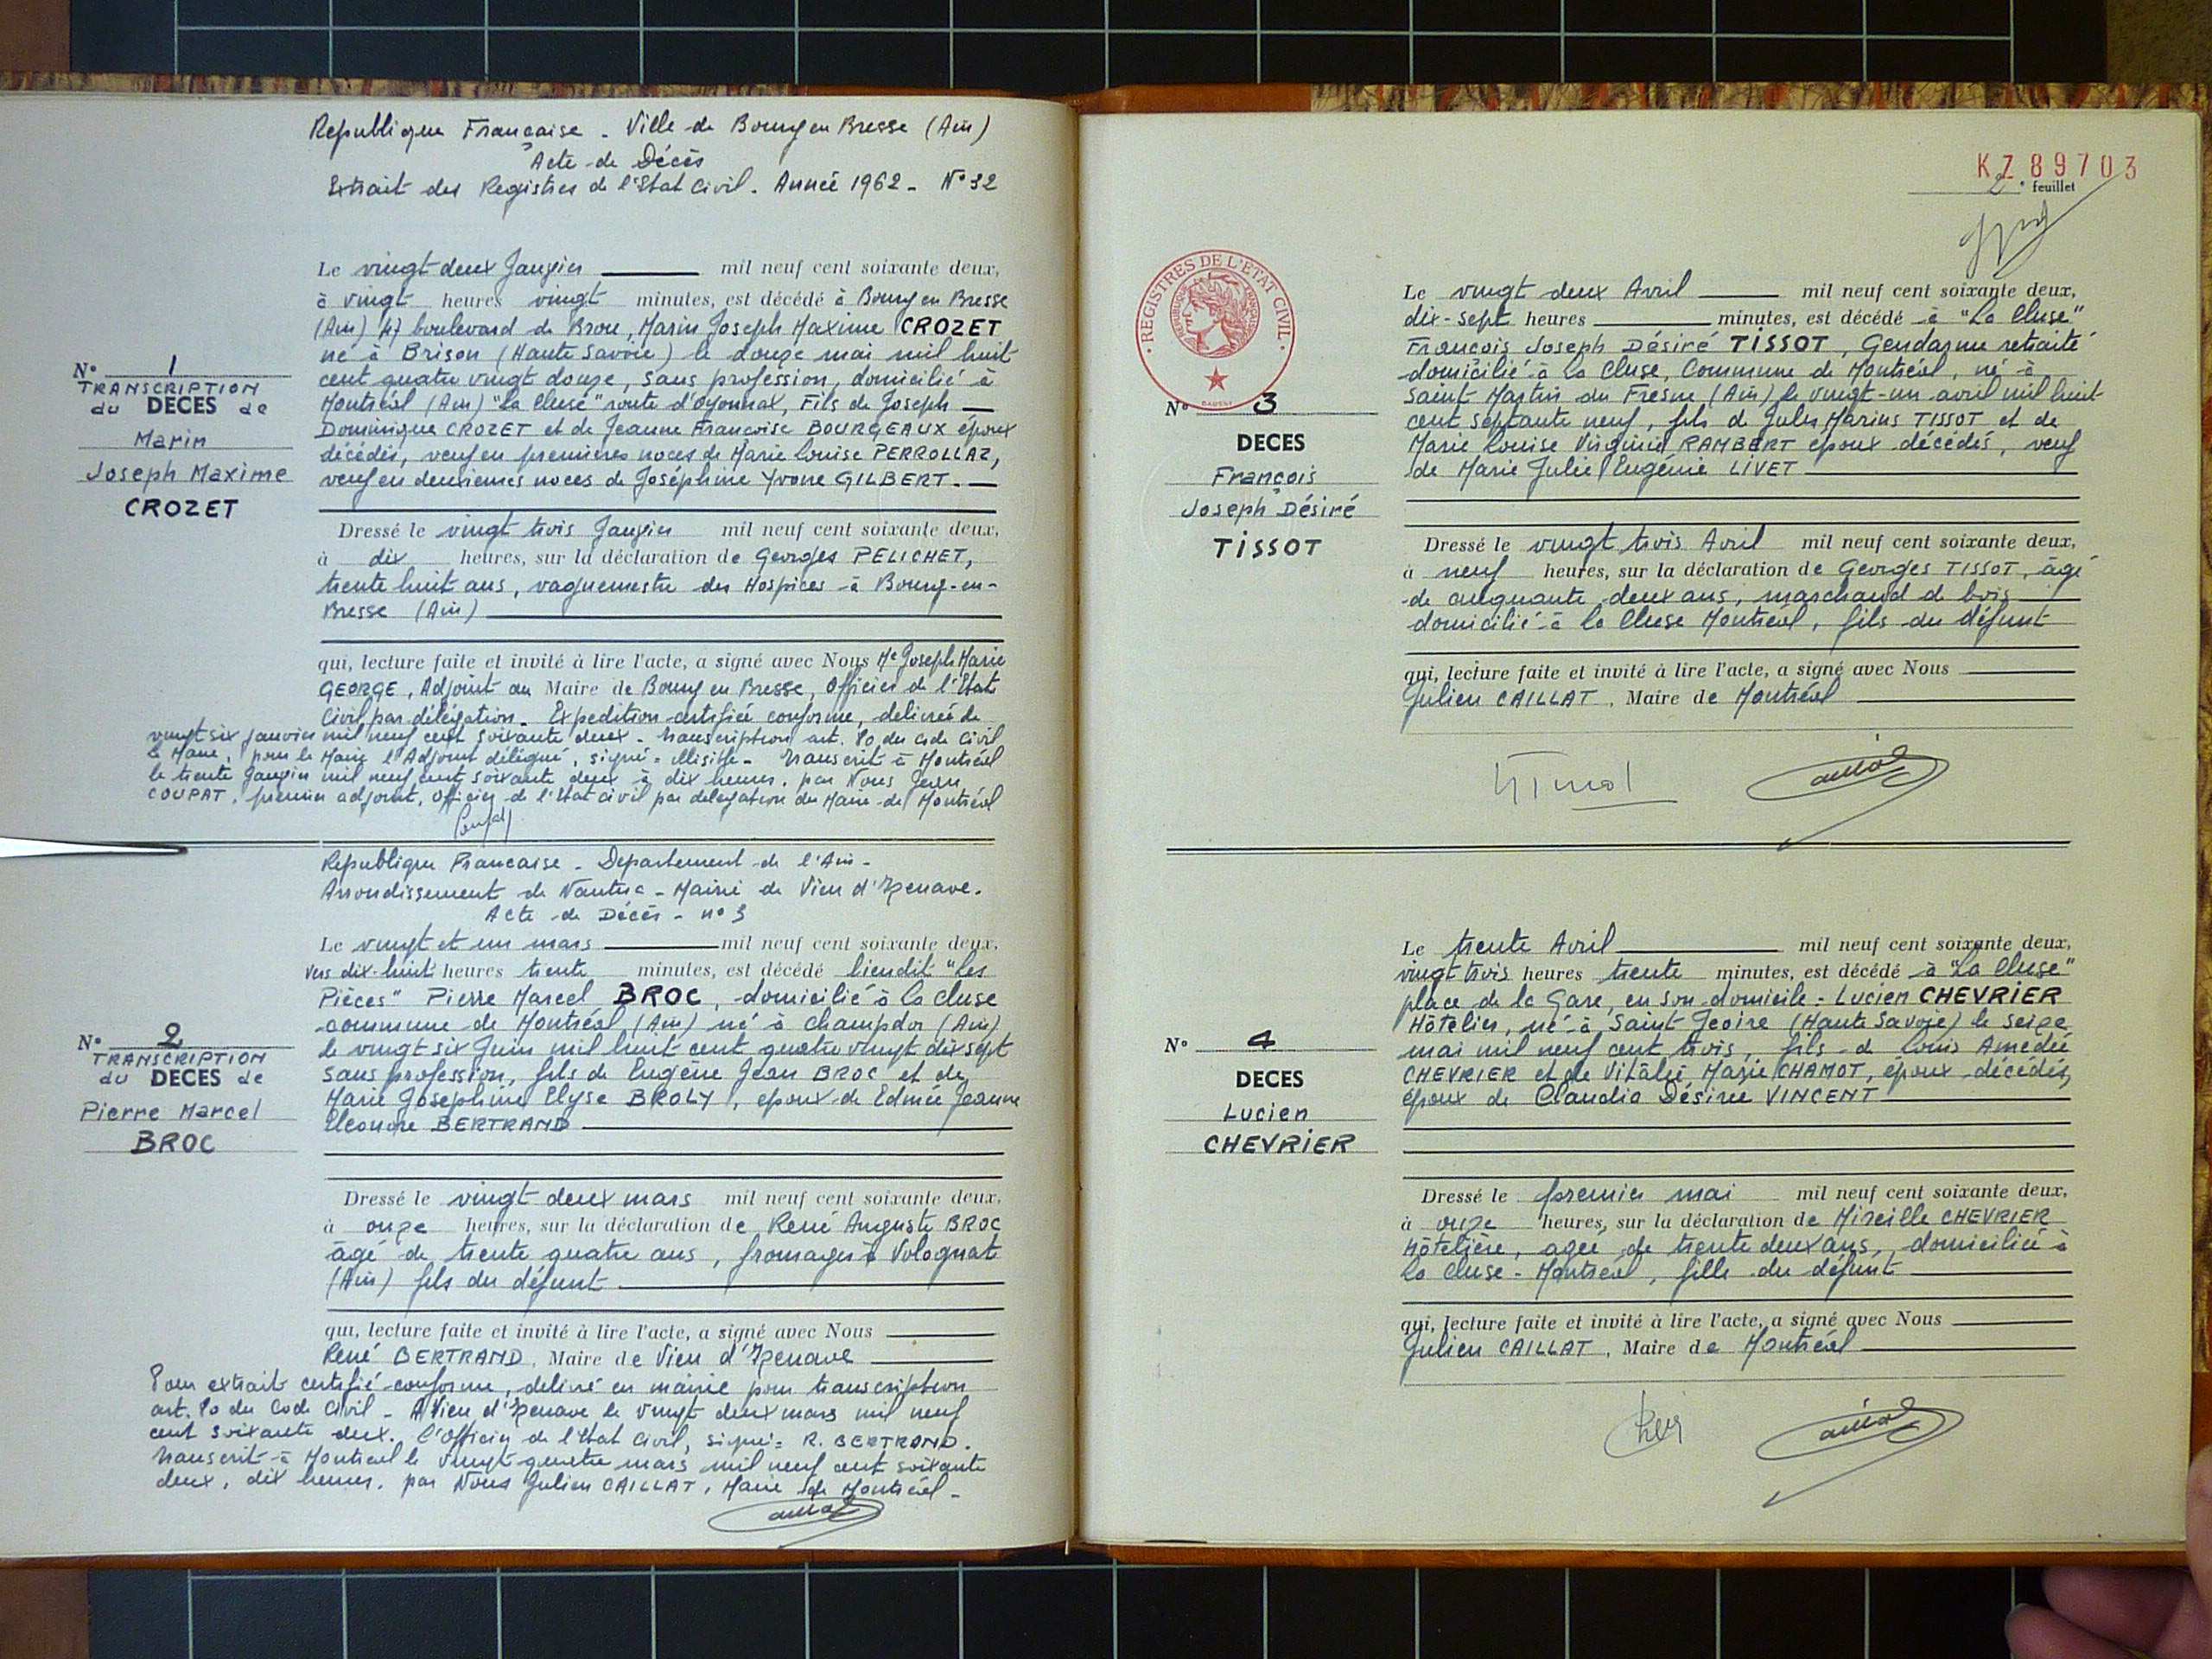 Republique Française - Ville de Bourg en Bresse (Ain)
Acte de Décès
Extrait des Registres de l'Etat Civil. Année 1962 - N° 32
Le vingt deux Janvier mil neuf cent soixante deux,
à vingt heures vingt minutes, est décédé à Bourg en Bresse
(Ain) 47 boulevard de Brou, Marin Joseph Maxime CROZET
né à Brison (Haute Savoie) le douze mai mil huit
cent quatre vingt douze, sans profession, domicilié à
Montréal (Ain) "La Cluse" route d'Oyonnax, Fils de Joseph
Dominique CROZET et de Jeanne Françoise BOURGEAUX époux
décédés, veuf en premières noces de Marie Louise PERROLLAZ,
veuf en deuxièmes noces de Joséphine Yvone GILBERT.
N° 1
TRANSCRIPTION
du DECES de
Marin
Joseph Maxime
CROZET
Dressé le vingt trois Janvier mil neuf cent soixante deux,
à dix heures, sur la déclaration de Georges PELICHET,
trente huit ans, vaguemestre des Hospices à Bourg-en-
Bresse (Ain)
qui, lecture faite et invité à lire l'acte, a signé avec Nous Me Joseph Marie
GEORGE, Adjoint au Maire de Bourg en Bresse, Officier de l'Etat
Civil par délégation. Expedition certifiée conforme, délivrée le
vingt six janvier mil neuf cent soixante deux - transcription art. 80 du code civil
le Maire, pour le Maire l'Adjoint délégué, signé = illisible - Transcrit à Montréal
le trente Janvier mil neuf cent soixante deux à dix heures, par Nous Jean
COUPAT, premier adjoint, officier de l'Etat civil par délégation du Maire de Montréal
Republique Francaise - Departement de l'Ain -
Arrondissement de Nantua - Mairie de Vieu d'Izenave.
Acte de Décès - n° 3
Le vingt et un mars mil neuf cent soixante deux,
vers dix-huit heures trente minutes, est décédé lieudit "Les
Pièces" Pierre Marcel BROC, domicilié à la Cluse
commune de Montréal (Ain) né à Champdor (Ain)
le vingt six Juin mil huit cent quatre vingt dix sept
sans profession, fils de Eugène Jean BROC et de
Marie Josephine Elyse BROLY, epoux de Edmée Jeanne
Eleonore BERTRAND
N° 2
TRANSCRIPTION
du DECES de
Pierre Marcel
BROC
Dressé le vingt deux mars mil neuf cent soixante deux,
à onze heures, sur la déclaration de René Auguste BROC
âgé de trente quatre ans, fromager à Volognat
(Ain) fils du défunt
qui, lecture faite et invité à lire l'acte, a signé avec Nous
René BERTRAND, Maire de Vieu d'Izenave
Pour extrait certifié conforme, delivré en mairie pour transcription
art. 80 du Code Civil - A Vieu d'Izenave le vingt deux mars mil neuf
cent soixante deux. L'Officier de l'Etat Civil, signé = R. BERTRAND.
Transcrit à Montréal le vingt-quatre mars mil neuf cent soixante
deux, dix heures, par Nous Julien CAILLAT, Maire de Montréal -
KZ 89703
2e feuillet
REGISTRES DE L'ETAT CIVIL
REPUBLIQUE FRANÇAISE
Le vingt deux Avril mil neuf cent soixante deux,
dix-sept heures minutes, est décédé à "La Cluse"
François Joseph Désiré TISSOT, Gendarme retraité
domicilié à La Cluse, Commune de Montréal, né à
Saint Martin du Fresne (Ain) le vingt-un avril mil huit
cent septante neuf, fils de Jules Marius TISSOT et de
Marie Louise Virginie RAMBERT epoux décédés, veuf
de Marie Julie Eugénie LIVET
N° 3
DECES
François
Joseph Désiré
TISSOT
Dressé le vingt trois Avril mil neuf cent soixante deux,
à neuf heures, sur la déclaration de Georges TISSOT, âgé
de cinquante deux ans, marchand de bois
domicilié à La Cluse Montréal, fils du défunt
qui, lecture faite et invité à lire l'acte, a signé avec Nous
Julien CAILLAT, Maire de Montréal
Le trente Avril mil neuf cent soixante deux,
vingt trois heures trente minutes, est décédé à "La Cluse"
place de la Gare, en son domicile - Lucien CHEVRIER
Hôtelier, né à Saint Jeoire (Haute Savoie) le seize
mai mil neuf cent trois, fils de Louis Amédée
CHEVRIER et de Vitalie Marie CHAMOT, époux décédés,
époux de Claudia Désirée VINCENT
N° 4
DECES
Lucien
CHEVRIER
Dressé le premier mai mil neuf cent soixante deux,
à onze heures, sur la déclaration de Mireille CHEVRIER
Hôtelière, agée de trente deux ans, domiciliée à
La Cluse - Montréal, fille du défunt
qui, lecture faite et invité à lire l'acte, a signé avec Nous
Julien CAILLAT, Maire de Montréal